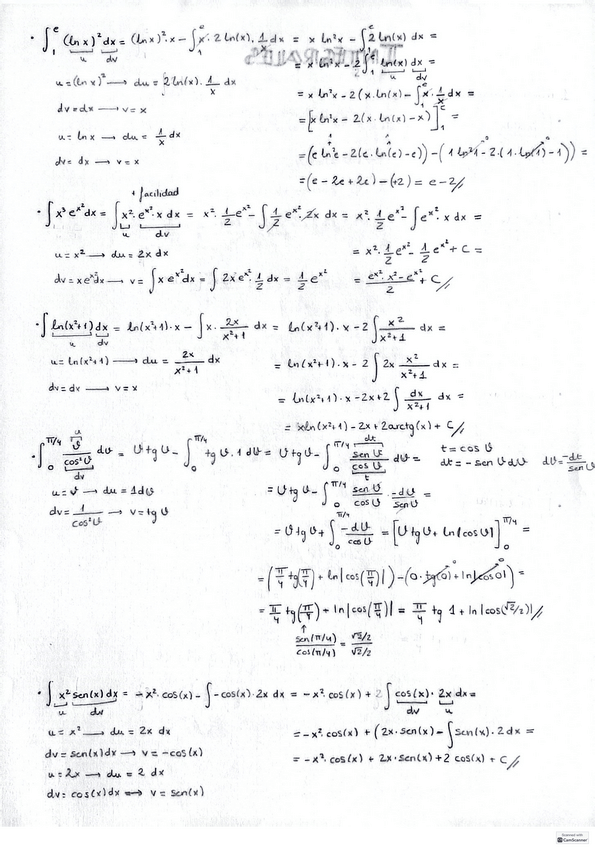 · ∫₁ᵉ (ln x)² dx = (ln x)²·x − ∫₁ᵉ x·2 ln(x)·1/x dx = x ln²x − ∫₁ᵉ 2 ln(x) dx =
u dv
= x ln²x − 2∫₁ᵉ ln(x) dx =
u dv
u = (ln x)² → du = 2 ln(x)·1/x dx
= x ln²x − 2(x·ln(x) − ∫₁ᵉ x·1/x dx =
dv = dx → v = x
= [x ln²x − 2(x·ln(x) − x)]₁ᵉ =
u = ln x → du = 1/x dx
dv = dx → v = x
= (e ln²e − 2(e·ln(e) − e)) − (1 ln²1 − 2·(1·ln(1) − 1)) =
= (e − 2e + 2e) − (+2) = e − 2//
+ facilidad
· ∫ x³ e^x² dx = ∫ x²·e^x²·x dx = x²·1/2 e^x² − ∫ 1/2 e^x²·2x dx = x²·1/2 e^x² − ∫ e^x²·x dx =
u dv
u = x² → du = 2x dx
= x²·1/2 e^x² − 1/2 e^x² + C =
dv = x e^x² dx → v = ∫ x e^x² dx = ∫ 2x e^x²·1/2 dx = 1/2 e^x²
= (e^x²·x² − e^x²)/2 + C//
· ∫ ln(x²+1) dx = ln(x²+1)·x − ∫ x·2x/(x²+1) dx = ln(x²+1)·x − 2∫ x²/(x²+1) dx =
u dv
u = ln(x²+1) → du = 2x/(x²+1) dx
= ln(x²+1)·x − 2∫ 2x x²/(x²+1) dx =
dv = dx → v = x
= ln(x²+1)·x − 2x + 2∫ dx/(x²+1) dx =
= xln(x²+1) − 2x + 2arctg(x) + C//
· ∫₀^π/4 ϑ/cos²ϑ dϑ = ϑ tg ϑ − ∫₀^π/4 tg ϑ·1 dϑ = ϑ tg ϑ − ∫₀^π/4 sen ϑ/cos ϑ dϑ =
u dv dt t
t = cos ϑ
dt = − sen ϑ dϑ dϑ = −dt/sen ϑ
u = ϑ → du = 1dϑ
= ϑ tg ϑ − ∫₀^π/4 sen ϑ/cos ϑ · −dϑ/sen ϑ =
dv = 1/cos²ϑ → v = tg ϑ
= ϑ tg ϑ + ∫₀^π/4 −dϑ/cos ϑ = [ϑ tg ϑ + ln|cos ϑ|]₀^π/4 =
= (π/4 tg(π/4) + ln|cos(π/4)|) − (0·tg(0) + ln|cos 0|) =
= π/4 tg(π/4) + ln|cos(π/4)| = π/4 tg 1 + ln|cos(√2/2)|//
sen(π/4)/cos(π/4) = √2/2 / √2/2
· ∫ x² sen(x) dx = −x²·cos(x) − ∫ −cos(x)·2x dx = −x²·cos(x) + 2∫ cos(x)·2x dx =
u dv dv u
u = x² → du = 2x dx
= −x²·cos(x) + (2x·sen(x) − ∫ sen(x)·2 dx =
dv = sen(x) dx → v = −cos(x)
= −x²·cos(x) + 2x·sen(x) + 2 cos(x) + C//
u = 2x → du = 2 dx
dv = cos(x) dx ⟹ v = sen(x)
Scanned with
CamScanner